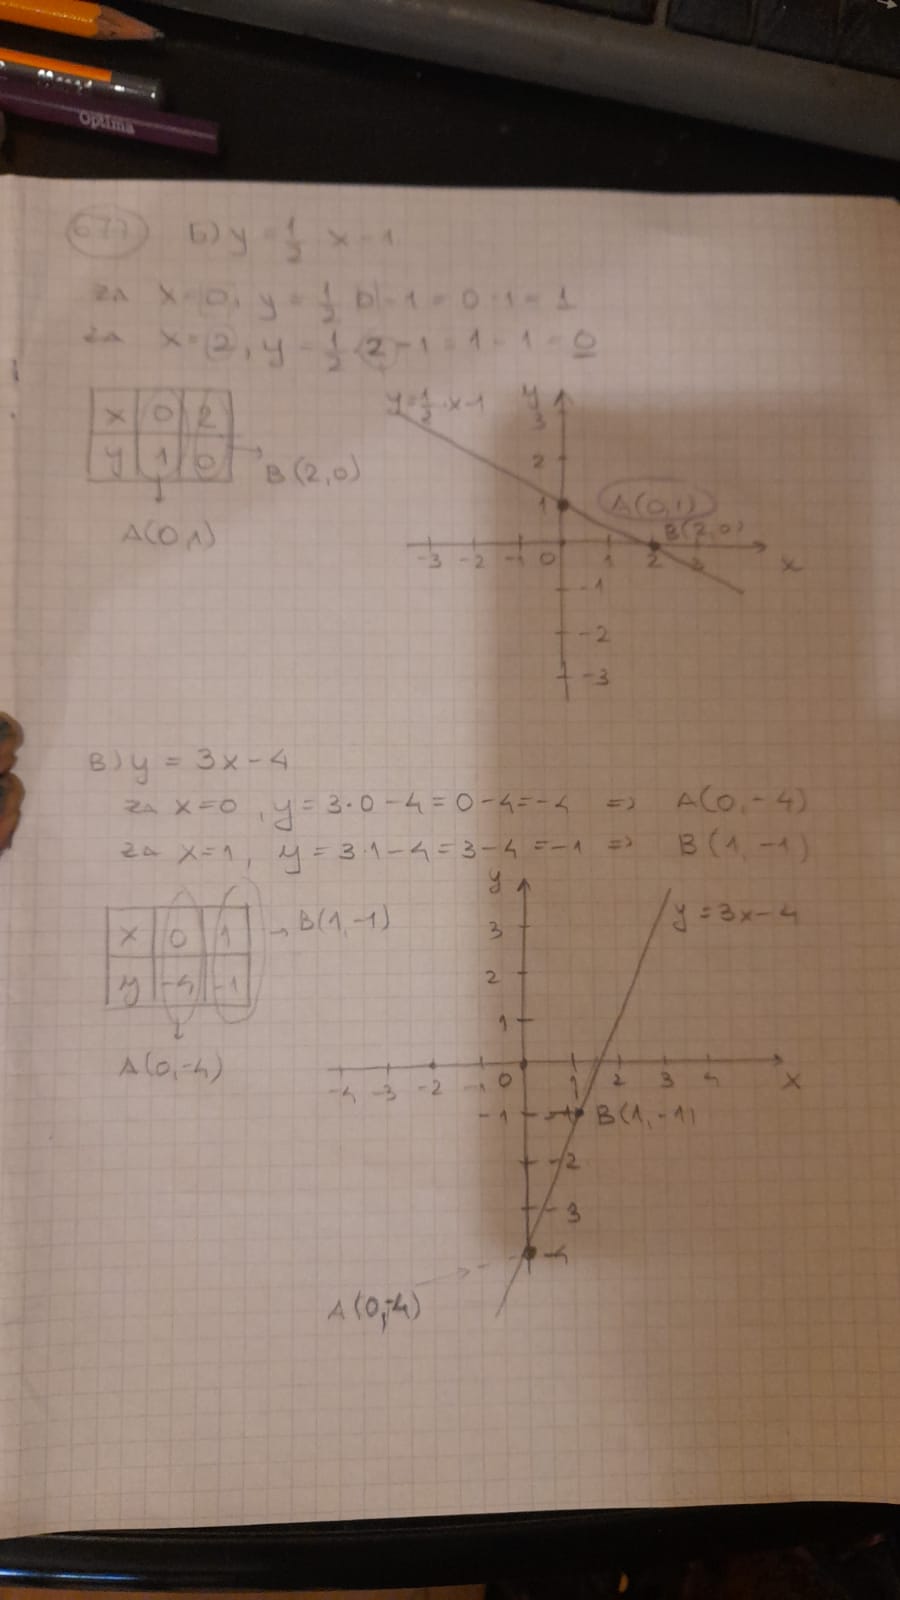 Optima
677 Б) y = 1/2 x - 1
за x = 0, y = 1/2 · 0 - 1 = 0 - 1 = 1
за x = 2, y = 1/2 · 2 - 1 = 1 - 1 = 0
x 0 2
y 1 0
B(2,0)
A(0,1)
y = 1/2 · x - 1
y
3
2
1 A(0,1)
B(2,0)
-3 -2 -1 0 1 2 3 x
-1
-2
-3
В) y = 3x - 4
за x = 0, y = 3·0 - 4 = 0 - 4 = -4 => A(0,-4)
за x = 1, y = 3·1 - 4 = 3 - 4 = -1 => B(1,-1)
x 0 1
y -4 -1
B(1,-1)
A(0,-4)
y
y = 3x - 4
3
2
1
-4 -3 -2 -1 0 1 2 3 4 x
-1 B(1,-1)
-2
-3
-4
A(0,-4)